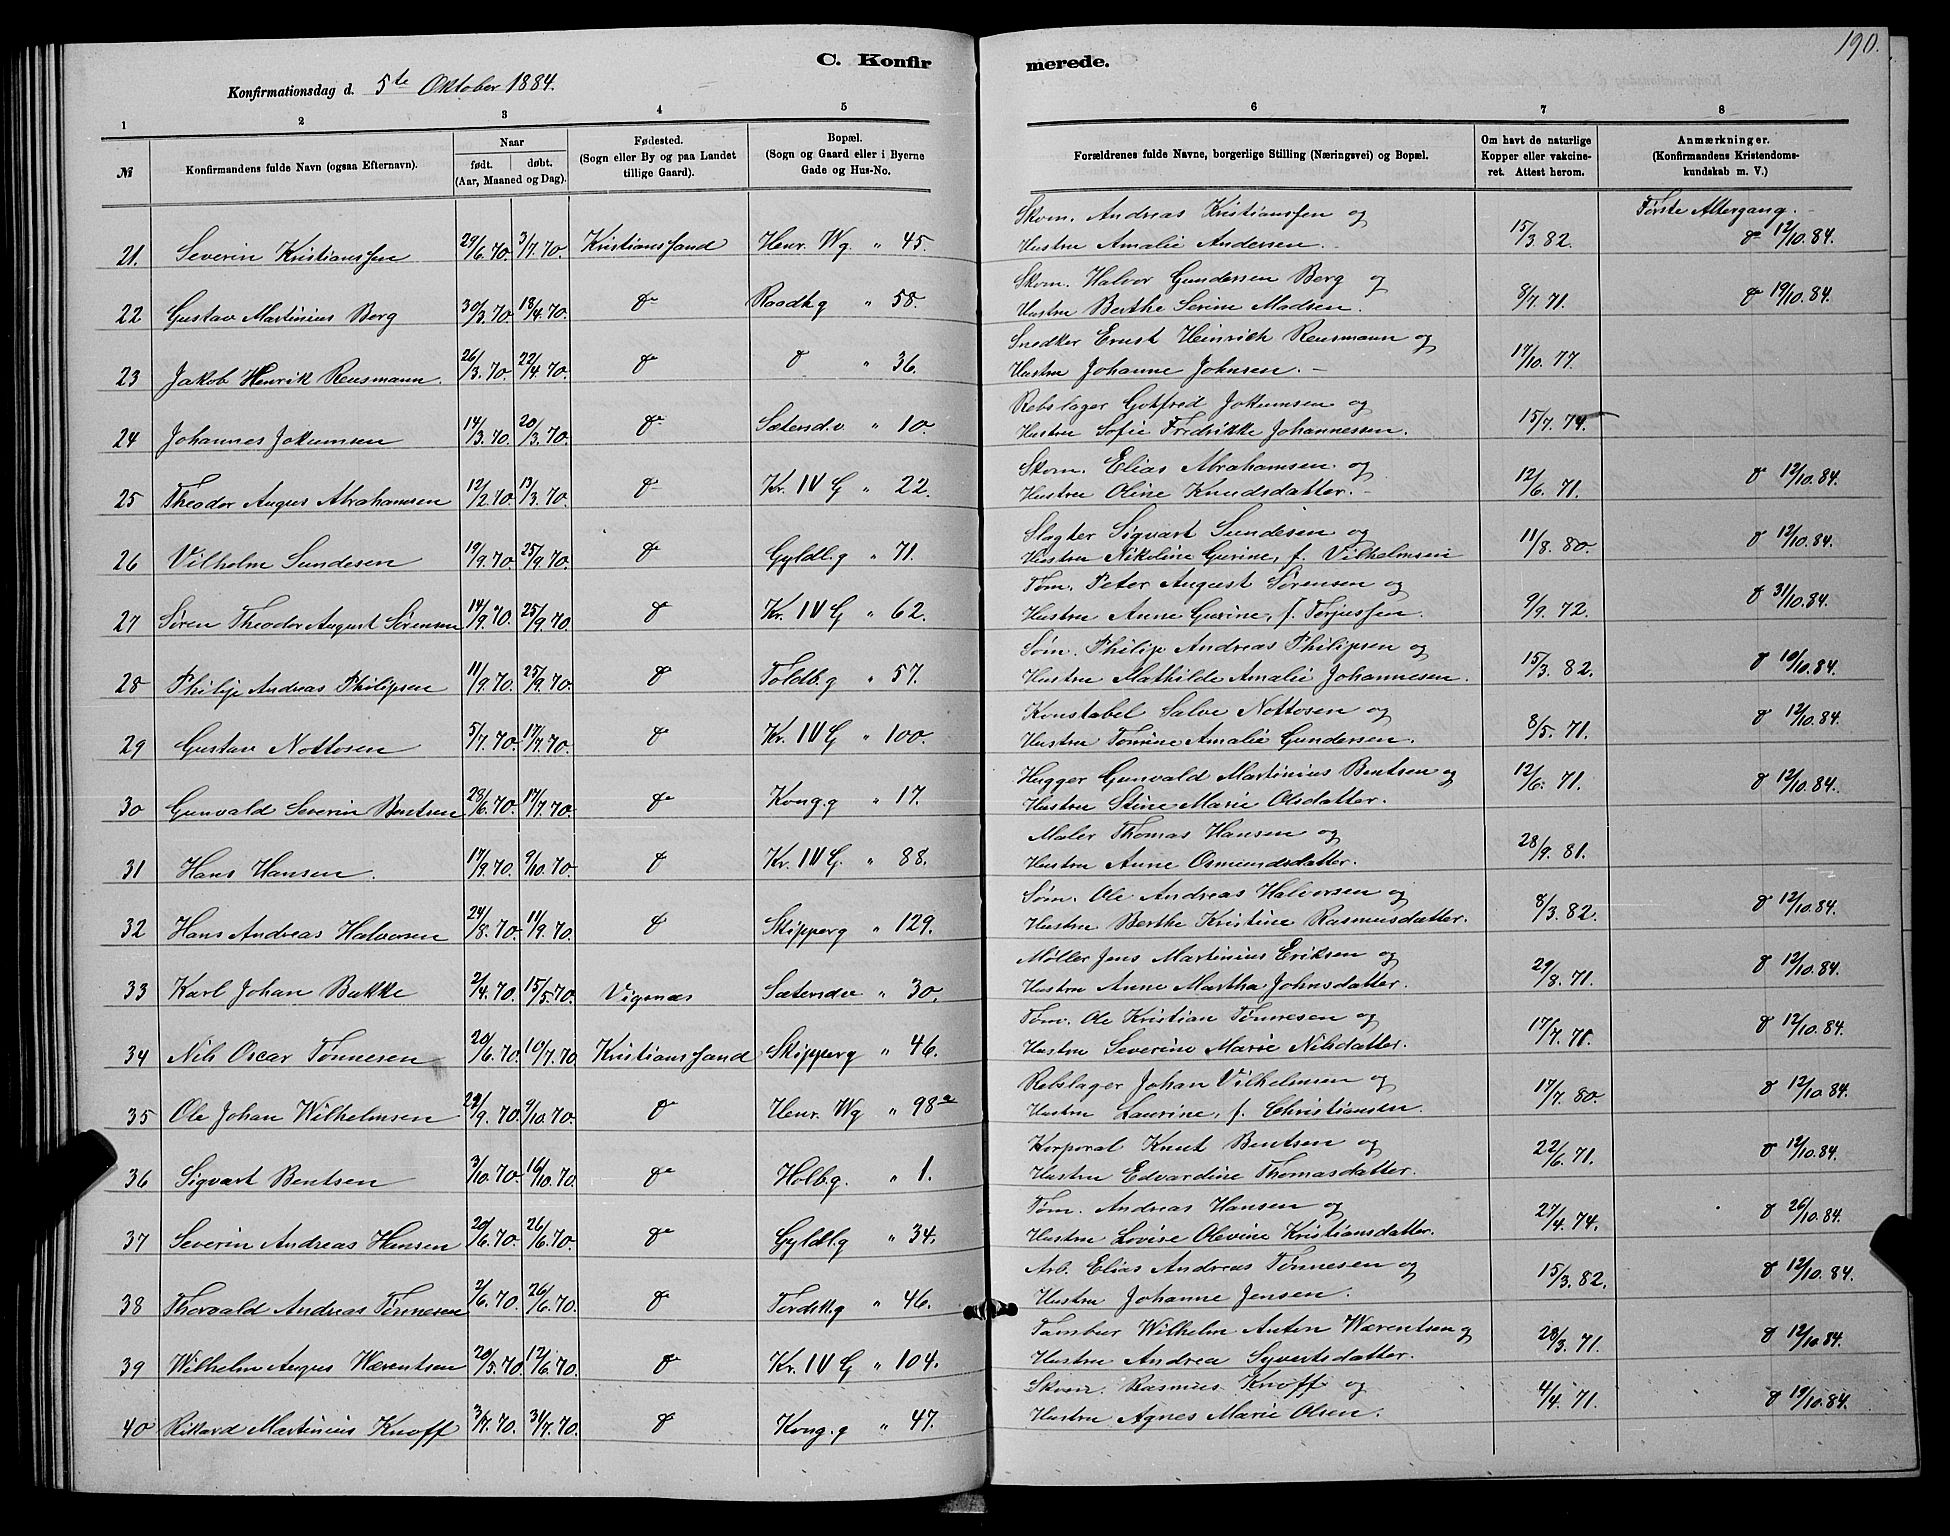 190.
C. Konfirmerede.
Konfirmationsdag d. 5te Oktober 1884.
1 2 3 4 5 6 7 8
№ Konfirmandens fulde Navn (ogsaa Efternavn). Naar født. døbt. (Aar, Maaned og Dag). Fødested. (Sogn eller By og paa Landet tillige Gaard). Bopæl. (Sogn og Gaard eller i Byerne Gade og Hus-No. Forældrenes fulde Navne, borgerlige Stilling (Næringsvei) og Bopæl. Om havt de naturlige Kopper eller vakcineret. Attest herom. Anmærkninger. (Konfirmandens Kristendomskundskab m. V.)
Første Altergang.
21. Severin Kristianssen 29/6.70. 3/7.70. Kristianssand Henr. Wg. " 45. Skom. Andreas Kristianssen og Hustru Amalie Andersen. 15/3 82. do 12/10.84.
22 Gustav Martinius Berg 30/3.70. 18/4.70. do Raadhg " 58. Skom. Halvor Gundersen Berg og Hustru Berthe Serine Madsen. 8/7. 71. do 19/10.84.
23 Jakob Henrik Reusmann. 26/3.70. 22/4.70. do do " 36. Snedker Ernst Heinrich Reusmann og Hustru Johanne Johnsen. 17/10. 77.
24 Johannes Jokumsen 14/3.70. 20/3.70. do Sætersd.v " 10. Rebslager Gotfred Jokumsen og Hustru Sofie Fredrikke Johannessen. 15/7. 74.
25 Theodor Augus Abrahamsen 12/2.70. 13/3.70. do Kr. IV G " 22. Skom. Elias Abrahamsen og Hustru Oline Knudsdatter. 12/6. 71. do 12/10.84.
26 Vilhelm Sundesen 19/9.70. 25/9.70. do Gyldl.g " 71. Slagter Sigvart Sundesen og Hustru Nikoline Gurine, f. Vilhelmsen 11/8. 80. do 12/10.84.
27 Søren Theodor August Sørensen 14/9.70. 25/9.70. do Kr. IV G " 62. Tøm. Peter August Sørensen og Hustru Anne Gurine, f. Terjussen. 9/9. 72. do 31/10.84.
28 Philip Andreas Philipsen 11/9.70. 25/9.70. do Toldb.g " 57. Søm. Philip Andreas Philipsen og Hustru Mathilde Amalie Johannesen. 15/3. 82. do 19/10.84.
29 Gustav Nottosen 5/7.70. 17/7.70. do Kr. IV G " 100. Konstabel Salve Nottosen og Hustru Tomine Amalie Gundersen. 8/5. 71. do 12/10.84.
30 Gunvald Severin Bentsen 28/6.70. 17/7.70. do Kong.g " 17. Hugger Gunvald Martinius Bentsen og Hustru Stine Marie Olsdatter. 12/6. 71. do 12/10.84.
31 Hans Hansen. 17/9.70. 9/10.70. do Kr. IV G. " 88. Maler Thomas Hansen og Hustru Anne Osmundsdatter. 28/9. 81.
32 Hans Andreas Halvorsen 24/8.70. 11/9.70. do Skipperg " 129. Søm. Ole Andreas Halvorsen og Hustru Berthe Kristine Rasmusdatter. 8/3. 82. do 12/10.84.
33 Karl Johan Bakke 2/4.70. 15/5.70. Vigsnæs Sætersdv " 30. Møller Jens Martinius Eriksen og Hustru Anne Martha Johnsdatter. 29/8. 71. do 12/10.84.
34 Nils Oscar Tønnesen 20/6.70. 10/7.70 Kristianssand Skipperg " 46. Tøm. Ole Kristian Tønnesen og Hustru Severine Marie Nilsdatter. 17/7. 71. do 12/10.84.
35 Ole Johan Wilhelmsen 29/9.70. 9/10.70. do Henr. Wg " 98a Rebslager Johan Vilhelmsen og Hustru Laurine, f. Christiansen. 17/7. 80. do 12/10.84.
36 Sigvart Bentsen 3/10.70. 16/10.70. do Holb.g. " 1. Korporal Knut Bentsen og Hustru Edvardine Thomasdatter. 22/6. 71. do 12/10.84.
37 Severin Andreas Hansen 20/6.70. 26/6.70. do Gyldl.g " 34. Tøm. Andreas Hansen og Hustru Lovise Olevine Kristiansdatter. 27/4. 74. do 26/10.84.
38 Thorvald Andreas Tønnesen 2/6.70. 26/6.70. do Tordsk.g " 46. Arb. Elias Andreas Tønnesen og Hustru Johanne Jensen. 15/3. 82. do 12/10.84.
39 Wilhelm Augus Wærentsen 20/5.70. 12/6.70. do Kr. IV G " 104. Tambur Wilhelm Anton Wærentsen og Hustru Andrea Syvertsdatter. 28/3. 71. do 12/10.84.
40 Rikard Martinius Knoff 3/7.70. 31/7.70. do Kong.g " 47. Skom. Rasmus Knoff og Hustru Agnes Marie Olsen. 4/4. 71. do 19/10.84.